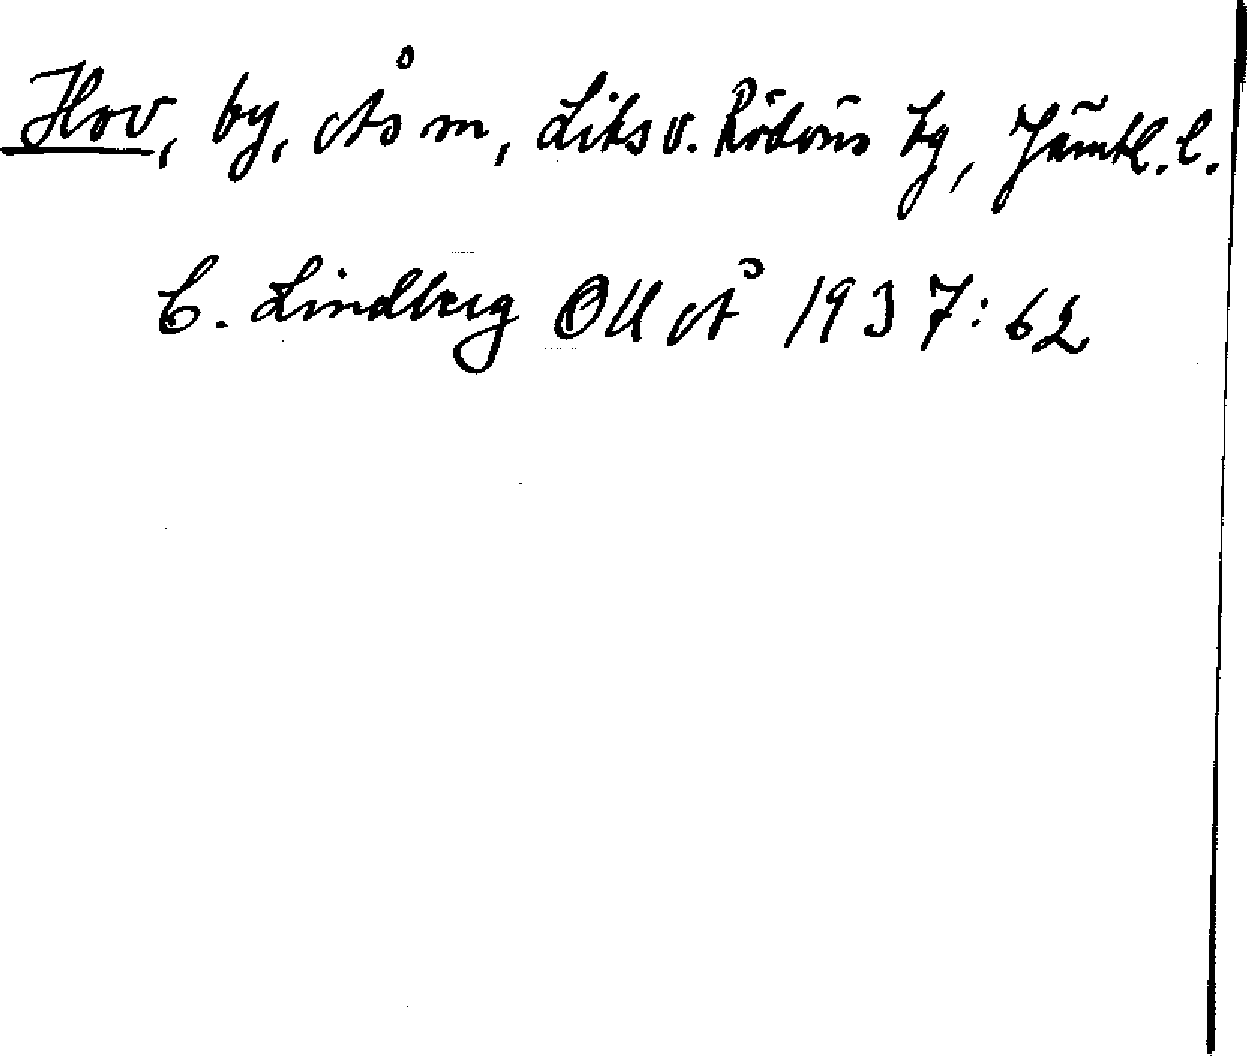 Hov, by, Ås sn, Lits o. Rödöns tg, Jämtl. l.
C. Lindberg OUÅ 1937:62